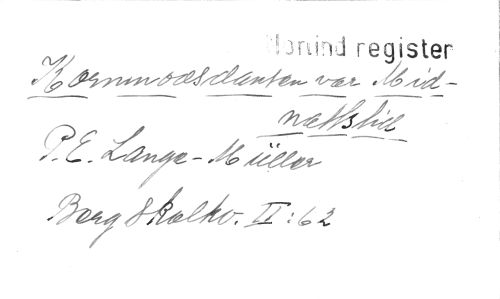 register
Kornmodsdansen var Mid-
nattstid
P. E. Lange-Müller
Borg Skalkv. II:62